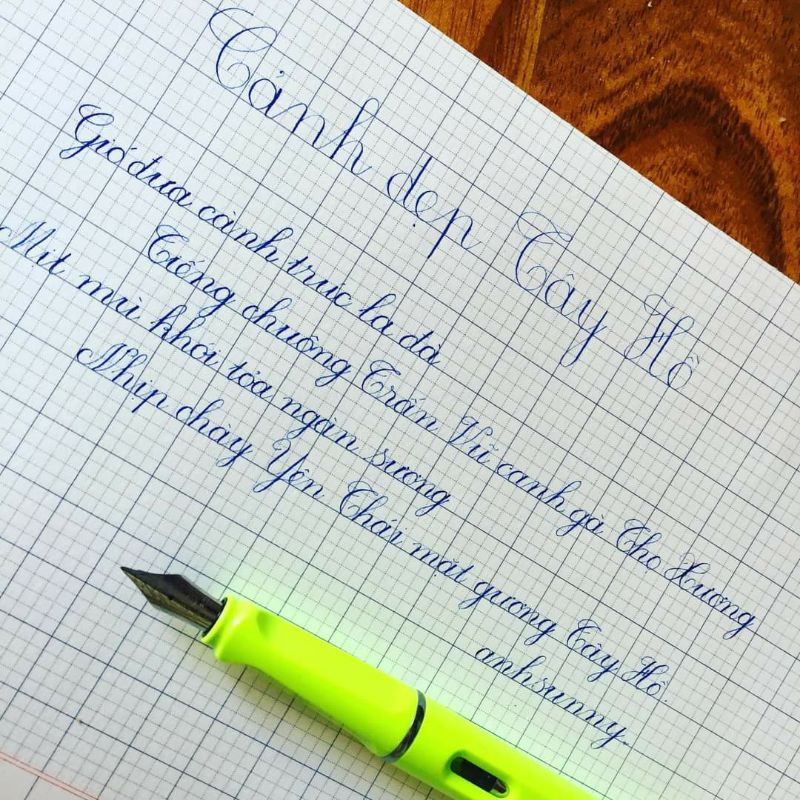 Cảnh đẹp Tây Hồ
Gió đưa cành trúc la đà
Tiếng chuông Trấn Vũ canh gà Thọ Xương
Mịt mù khói tỏa ngàn sương
Nhịp chày Yên Thái mặt gương Tây Hồ.
anhsunny.